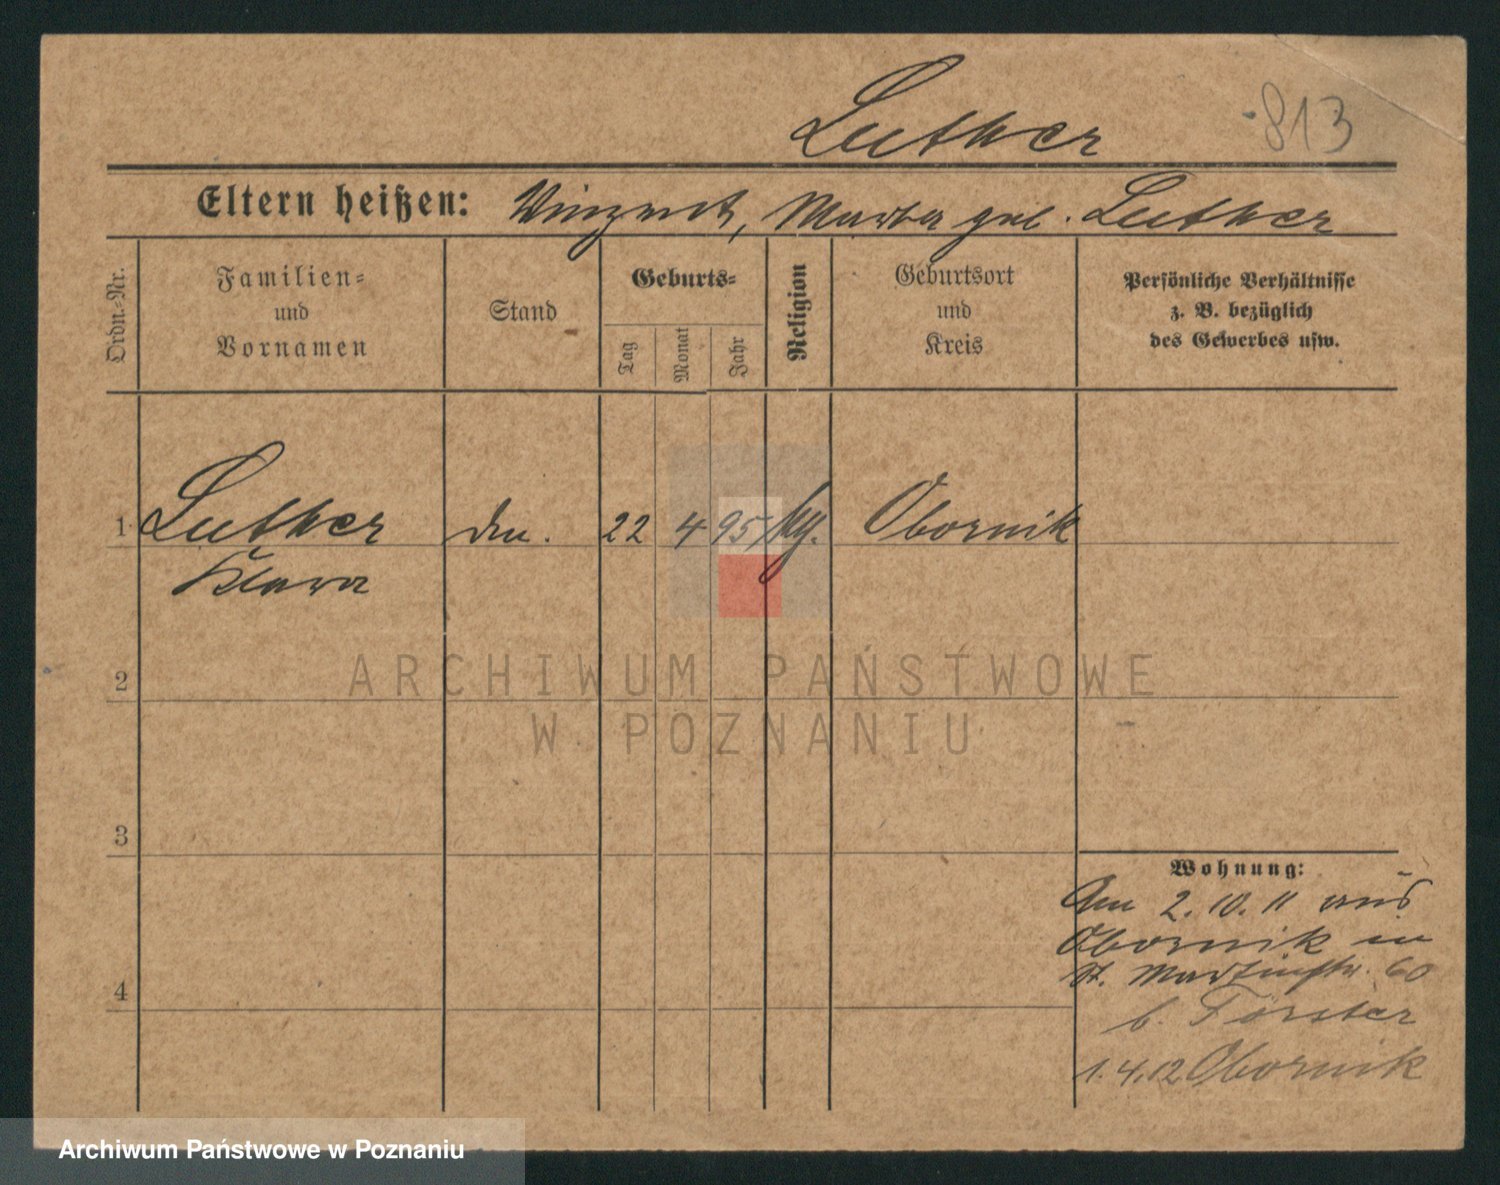 Luther
813
Eltern heißen: Vinzent, Martha geb. Luther
Ordn.-Nr.
Familien-
und
Vornamen
Stand
Geburts-
Tag
Monat
Jahr
Religion
Geburtsort
und
Kreis
Persönliche Verhältnisse
z. B. bezüglich
des Gewerbes usw.
1 Luther 22 4 95 Obornik
Klara
ARCHIWUM PAŃSTWOWE
W POZNANIU
2
3
4
Wohnung:
Am 2.10.11 aus
Obornik in
St. Martinstr. 60
b. Förster
1.4.12 Obornik
Archiwum Państwowe w Poznaniu